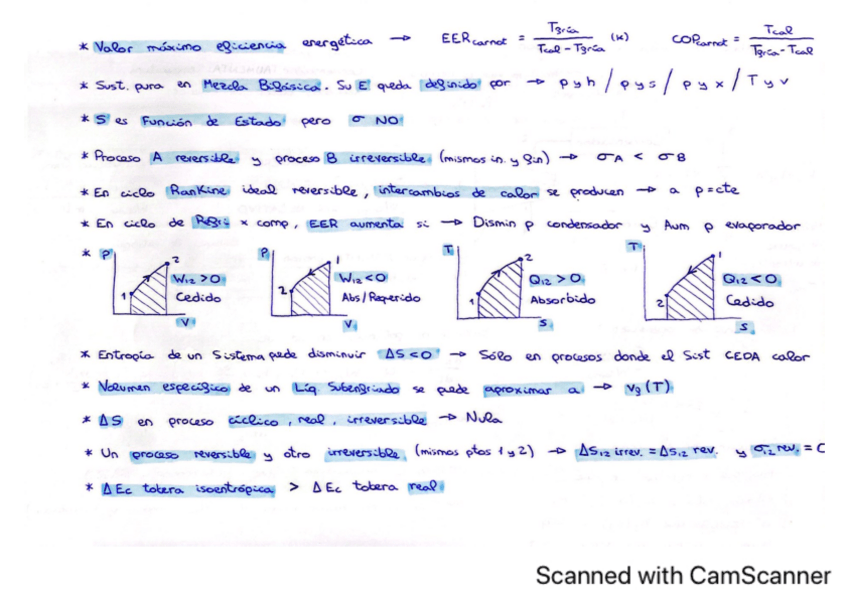 * Valor máximo eficiencia energética → EER carnot = Tfría / Tcal - Tfría (K) COP carnot = Tcal / Tfría - Tcal
* Sust. pura en Mezcla Bifásica. Su E queda definido por → p y h / p y s / p y x / T y v
* S es Función de Estado pero σ NO
* Proceso A reversible y proceso B irreversible (mismos in. y fin) → σA < σB
* En ciclo Rankine ideal reversible, intercambios de calor se producen → a p=cte
* En ciclo de Refri x comp, EER aumenta si → Dismin p condensador y Aum p evaporador
* P 1 2 V W12 > 0 Cedido
P 2 1 V W12 < 0 Abs/Requerido
T 1 2 S Q12 > 0 Absorbido
T 2 1 S Q12 < 0 Cedido
* Entropía de un Sistema puede disminuir ΔS<0 → Sólo en procesos donde el Sist CEDA calor
* Volumen específico de un Líq. Subenfriado se puede aproximar a → vf (T)
* ΔS en proceso cíclico, real, irreversible → Nula
* Un proceso reversible y otro irreversible (mismos ptos 1 y 2) → ΔS12 irrev. = ΔS12 rev. y σ12 rev. =
* ΔEc tobera isoentrópica > ΔEc tobera real
Scanned with CamScanner